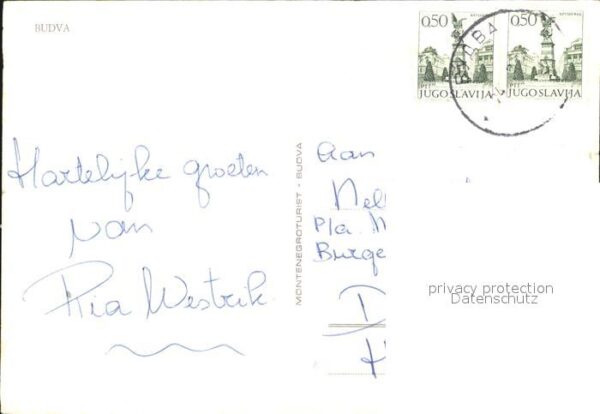 BUDVA
0,50
0,50
JUGOSLAVIJA
JUGOSLAVIJA
Hartelijke groeten
van
Ria Westrik
MONTENEGROTURIST - BUDVA
Aan
Nel
Pla.
Burge
D
H
privacy protection
Datenschutz